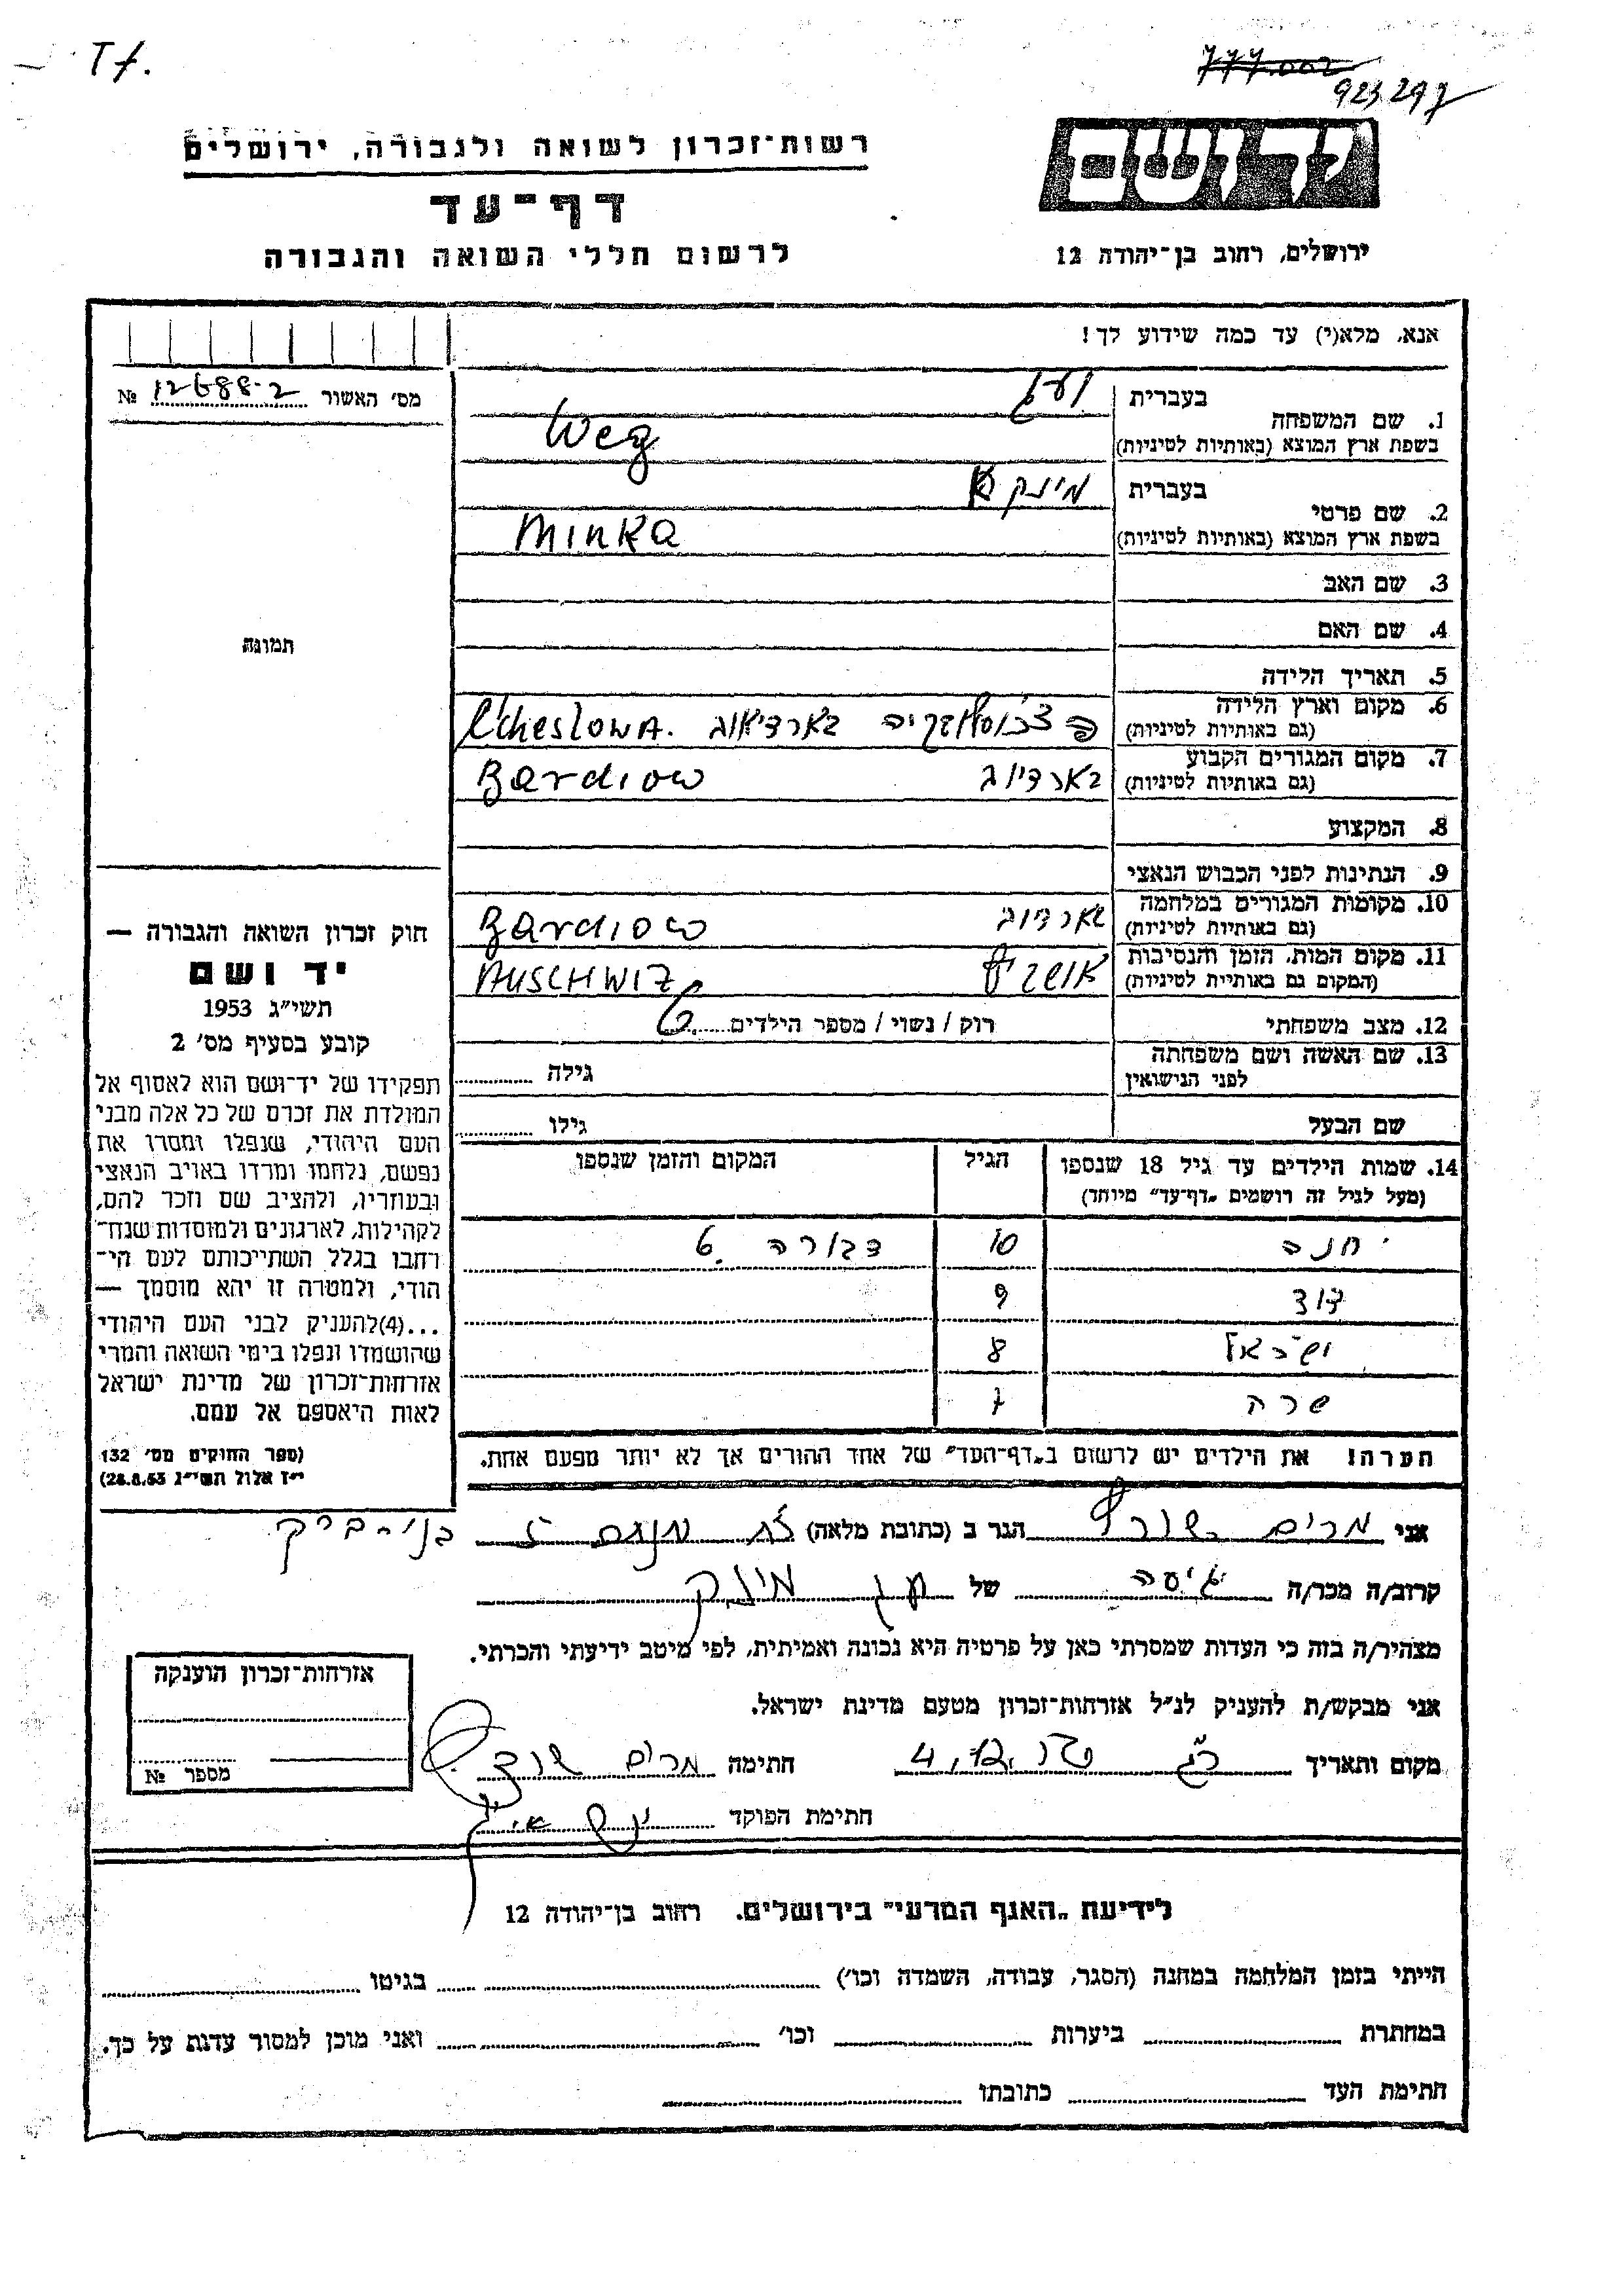 Tf.
777.002
923297
רשות־זכרון לשואה ולגבורה, ירושלים
ידושם
דף־עד
לרשום חללי השואה והגבורה
ירושלים, רחוב בן־יהודה 12
אנא, מלא(י) עד כמה שידוע לך!
מס׳ האשור № 12688-2
תמונה
חוק זכרון השואה והגבורה —
יד ושם
תשי״ג 1953
קובע בסעיף מס׳ 2
תפקידו של יד־ושם הוא לאסוף אל
המולדת את זכרם של כל אלה מבני
העם היהודי, שנפלו ומסרו את
נפשם, נלחמו ומרדו באויב הנאצי
ובעוזריו, ולהציב שם וזכר להם,
לקהילות, לארגונים ולמוסדות שנח־
רחבו בגלל השתייכותם לעם הי־
הודי, ולמטרה זו יהא מוסמך —
...(4)להעניק לבני העם היהודי
שהושמדו ונפלו בימי השואה והמרי
אזרחות־זכרון של מדינת ישראל
לאות היאספם אל עמם.
(ספר החוקים מס׳ 132
י״ז אלול תשי״ג 28.8.53)
בעברית
1. שם המשפחה
בשפת ארץ המוצא (באותיות לטיניות) Weg
בעברית מינקא
2. שם פרטי
בשפת ארץ המוצא (באותיות לטיניות) MINKA
3. שם האב
4. שם האם
5. תאריך הלידה
6. מקום וארץ הלידה
(גם באותיות לטיניות) בארדיאוב
7. מקום המגורים הקבוע
(גם באותיות לטיניות) בארדיוב Bardiow
8. המקצוע
9. הנתינות לפני הכבוש הנאצי
10. מקומות המגורים במלחמה
(גם באותיות לטיניות) בארדיוב Bardiow
11. מקום המות, הזמן והנסיבות
(המקום גם באותיית לטיניות) אושביץ AUSCHWIZ
12. מצב משפחתי רוק / נשוי / מספר הילדים 6
13. שם האשה ושם משפחתה גילה
לפני הנישואין
שם הבעל גילו
14. שמות הילדים עד גיל 18 שנספו הגיל המקום והזמן שנספו
(מעל לגיל זה רושמים „דף־עד״ מיוחד)
חנה 10 דבורה 6
דוד 9
ישראל 8
שרה 7
הערה! את הילדים יש לרשום ב„דף־העד״ של אחד ההורים אך לא יותר מפעם אחת.
אני מרים הגר ב (כתובת מלאה) בני-ברק
קרוב/ה מכר/ה גיסה של וג מינקה
מצהיר/ה בזה כי העדות שמסרתי כאן על פרטיה היא נכונה ואמיתית, לפי מיטב ידיעתי והכרתי.
אני מבקש/ת להעניק לנ״ל אזרחות־זכרון מטעם מדינת ישראל.
מקום ותאריך חתימה מרים
חתימת הפוקד
אזרחות־זכרון הוענקה
מספר №
לידיעת „האגף המדעי״ בירושלים. רחוב בן־יהודה 12
הייתי בזמן המלחמה במחנה (הסגר, עבודה, השמדה וכו׳) בגיטו
במחתרת ביערות וכו׳ ואני מוכן למסור עדות על כך.
חתימת העד כתובתו